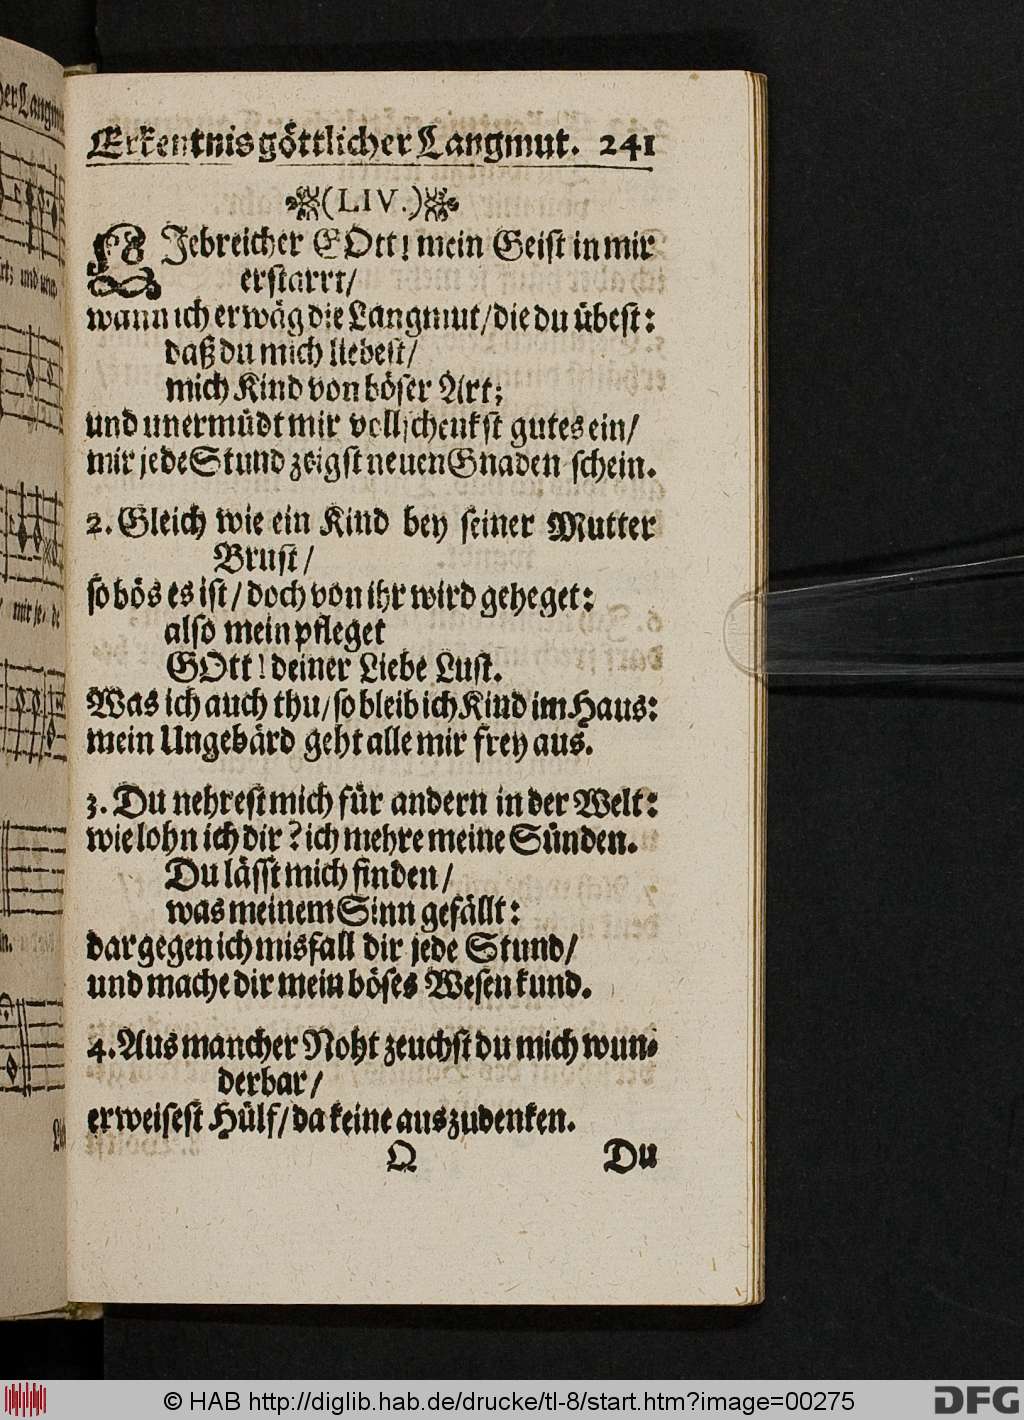 Erkentnis göttlicher Langmut. 241
(LIV.)
LJebreicher GOtt! mein Geist in mir
erstarrt/
wann ich erwäg die Langmut/ die du übest:
daß du mich liebest/
mich Kind von böser Art;
und unermüdt mir vollschenkst gutes ein/
mir jede Stund zeigst neuen Gnaden schein.
2. Gleich wie ein Kind bey seiner Mutter
Brust/
so bös es ist/ doch von ihr wird geheget:
also mein pfleget
GOtt! deiner Liebe Lust.
Was ich auch thu/ so bleib ich Kind im Haus:
mein Ungebärd geht alle mir frey aus.
3. Du nehrest mich für andern in der Welt:
wie lohn ich dir? ich mehre meine Sünden.
Du lässt mich finden/
was meinem Sinn gefällt:
dargegen ich misfall dir jede Stund/
und mache dir mein böses Wesen kund.
4. Aus mancher Noht zeuchst du mich wun-
derbar/
erweisest Hülf/ da keine auszudenken.
Q Du
© HAB http://diglib.hab.de/drucke/tl-8/start.htm?image=00275
DFG